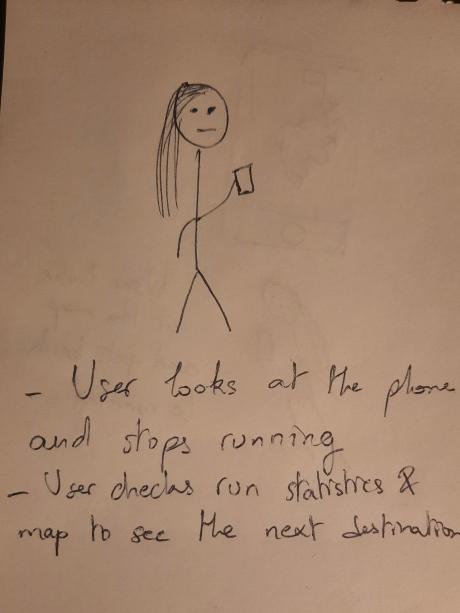 - User looks at the phone
and stops running
- User checks run statistics &
map to see the next destination